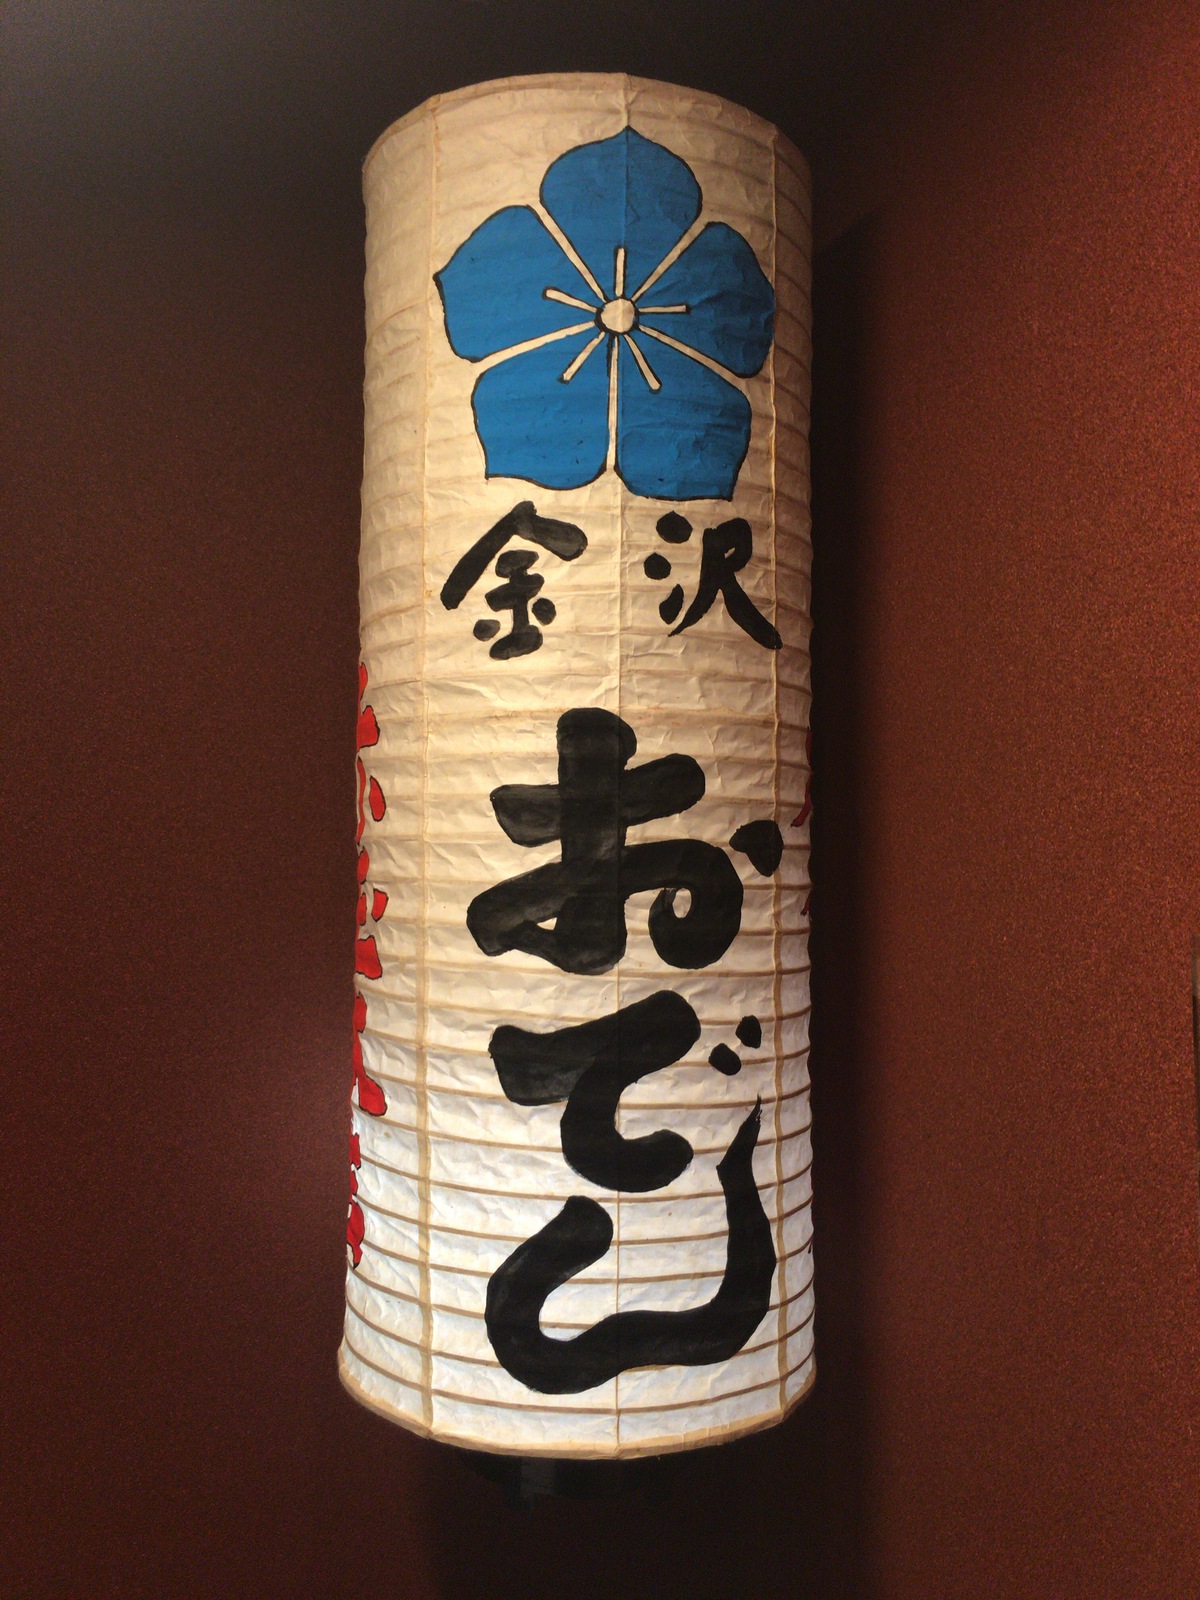 金沢
おでん